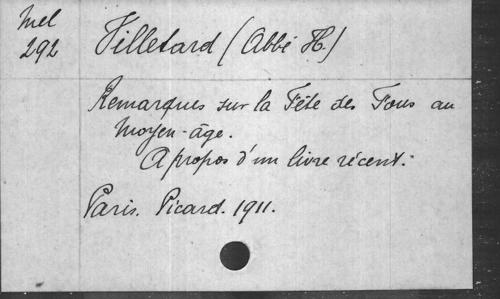 Mel
292
Villetard (Abbé H.)
Remarques sur la Fête des Fous au
moyen-âge.
A propos d'un livre récent.
Paris. Picard. 1911.